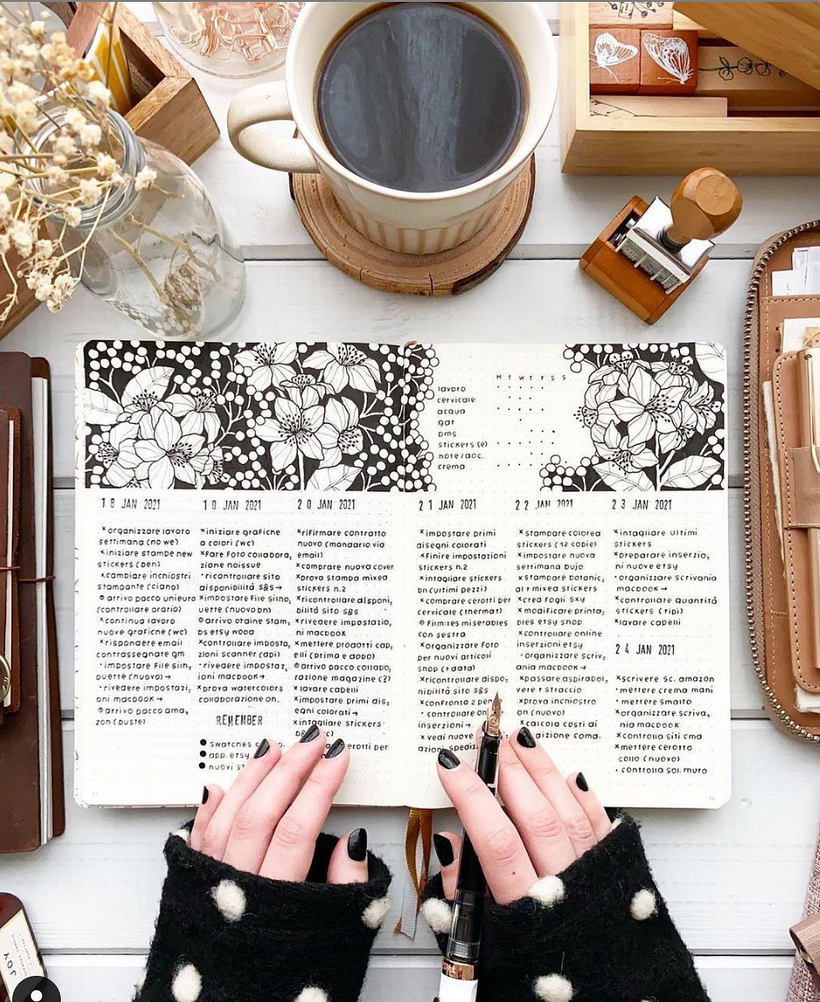 M T W T F S S
lavoro
cervicale
acqua
gat
pms
stickers (e)
note/doc.
crema
18 JAN 2021
*organizzare lavoro
settimana (no we)
*iniziare stampe new
stickers (pen)
*cambiare inchiostri
stampante (ciano)
arrivo pacco unieuro
(controllare orario)
*continua lavoro
nuove grafiche (wc)
*rispondere email
contrassegnate gm
*impostare file silh,
ouette (nuovo) →
*rivedere impostazi,
oni macbook →
arrivo pacco ama,
zon (buste)
19 JAN 2021
*iniziare grafiche
a colori (wc)
*fare foto collabora,
zione noissue
*ricontrollare sito
disponibilità s&s →
*impostare file silho,
uette (nuovo pn)
arrivo otaine stam,
ps etsy wood
*controllare imposta,
zioni scanner (api)
*rivedere impostaz,
ioni macbook →
*prova watercolors
collaborazione on.
REMEMBER
swatches
app. etsy
nuovi st
20 JAN 2021
*rifirmare contratto
nuovo (mandarlo via
email)
*comprare nuova cover
*prova stampa mixed
stickers n.2
*ricontrollare disponi,
bilità sito s&s
*rivedere impostazio,
ni macbook
*mettere prodotti cap,
elli (prima e dopo)
arrivo pacco collabo,
razione magazine (2)
*lavare capelli
*impostare primi dis,
egni colorati →
*intagliare stickers
erotti per
21 JAN 2021
*impostare primi
disegni colorati
*finire impostazioni
stickers n.2
*intagliare stickers
bn (ultimi pezzi)
*comprare cerotti per
cervicale (thermat)
film: les miserables
con sestra
*organizzare foto
per nuovi articoli
shop (+ data)
*ricontrollare dispo,
nibilità sito s&s
*confronta 2 pen
*controllare on
inserzioni →
*vedi nuove
azioni spediz
22 JAN 2021
*stampare colorea
stickers (12 copie)
*impostare nuova
settimana bujo
*stampare botanic,
al + mixed stickers
*crea fogli sky
*modificare printa,
bles etsy shop
*controllare online
inserzioni etsy
*organizzare scriv,
ania macbook →
*passare aspirapol,
vere + straccio
*prova inchiostro
on (nuovo)
*calcola costi di
spedizione coma.
23 JAN 2021
*intagliare ultimi
stickers
*preparare inserzio,
ni nuove etsy
*organizzare scrivania
macbook →
*controllare quantità
stickers (tipi)
*lavare capelli
24 JAN 2021
*scrivere sc. amazon
*mettere crema mani
*mettere smalto
*organizzare scriva,
nia macbook
*controlla siti cma
*mettere cerotto
collo (nuovo)
*controlla sol. muro
JOY